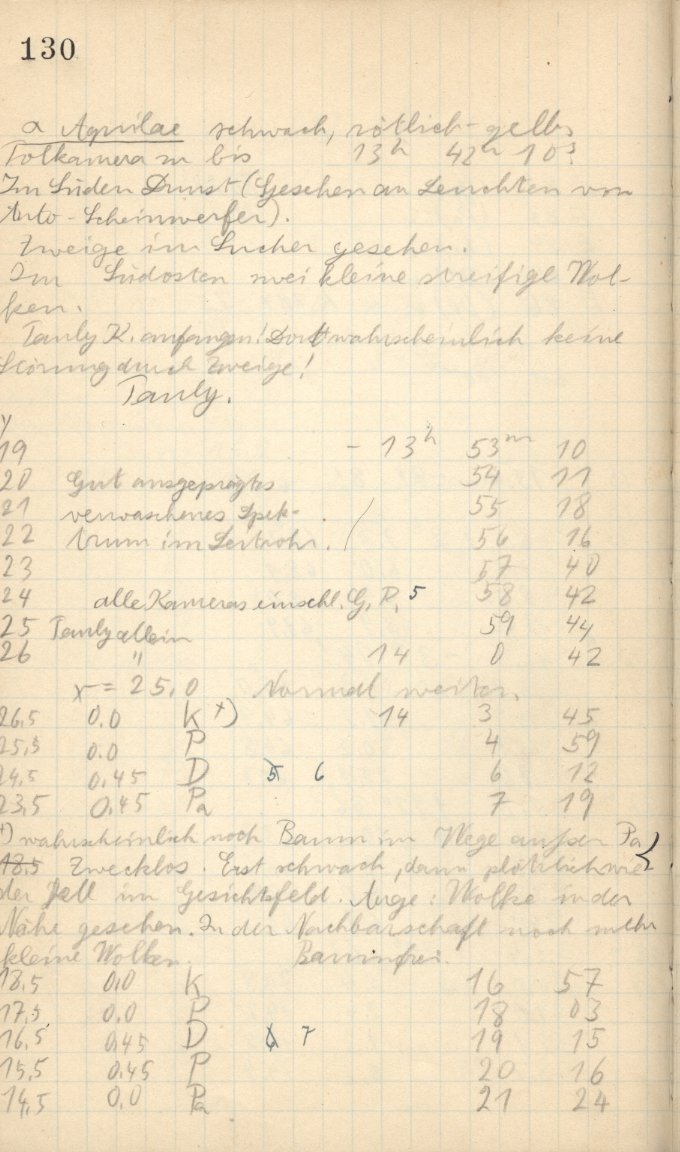 130
α Aquilae schwach, rötlich-gelb,
zu bis 13h 42m 10s
Im Süden Dunst (Gesehen an Leuchten von
Auto-Scheinwerfer).
Zweige im Sucher gesehen.
Im Südosten zwei kleine streifige Wol-
ken.
K. anfangen! Dort wahrscheinlich keine
Störung durch Zweige!
y
19 - 13h 53m 10
20 Gut ausgeprägtes 54 11
21 verwaschenes Spek- 55 18
22 trum im Leitrohr. 56 16
23 57 40
24 alle Kameras einschl. G. P. 5 58 42
25 allein 59 44
26 " 14 0 42
x = 25,0 Normal weiter.
26,5 0.0 K +) 14 3 45
25,5 0.0 P 4 59
24,5 0,45 D 5 6 6 12
23,5 0,45 Pa 7 19
+) wahrscheinlich noch Baum im Wege außer Pa
18,5 Zwecklos. Erst schwach, dann plötzlich wie
der hell im Gesichtsfeld. Auge: Wolke in der
Nähe gesehen. In der Nachbarschaft noch mehr
kleine Wolken. Baumfrei.
18,5 0,0 K 16 57
17,5 0,0 P 18 03
16,5 0,45 D 6 7 19 15
15,5 0,45 P 20 16
14,5 0,0 Pa 21 24